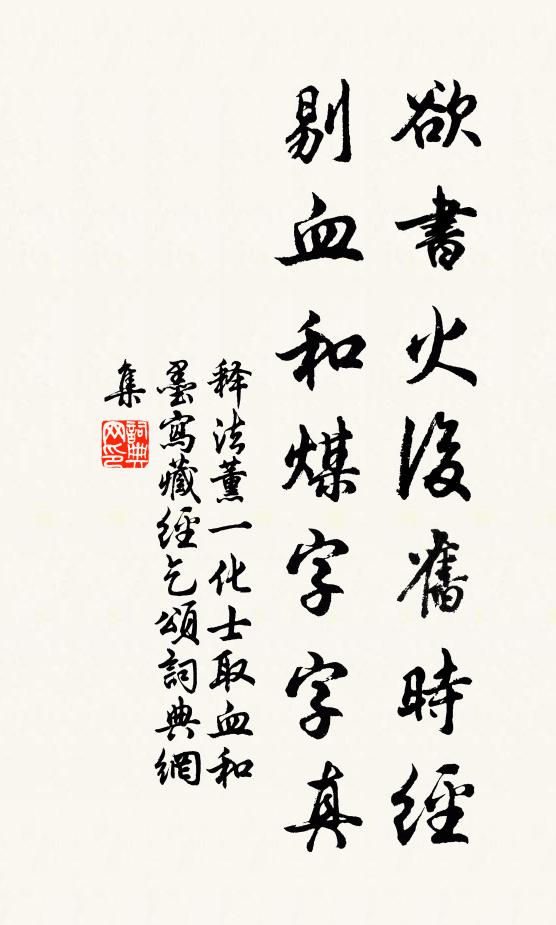 欲書火後舊時經
剔血和煤字字真
释法薰一化士取血和
墨寫藏經乞頌詞典網
集
詞典
网印